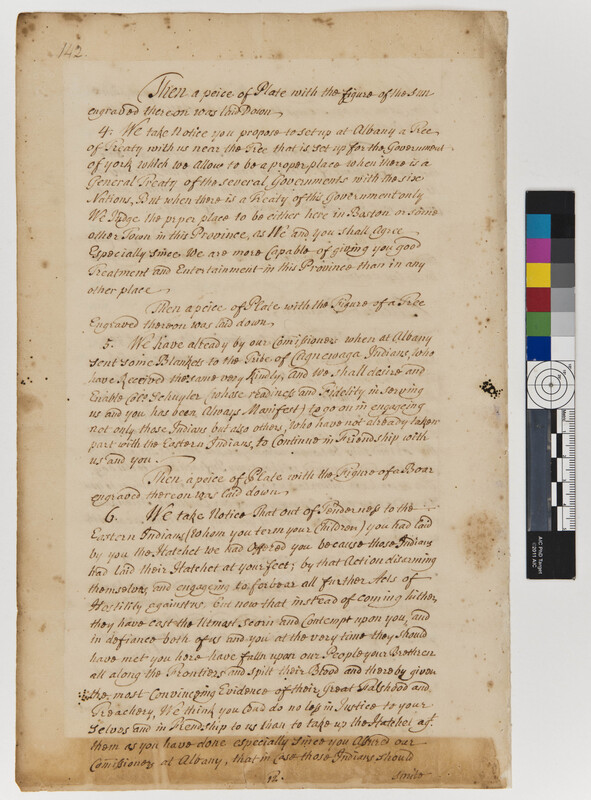 142
Then a peice of Plate with the figure of the sun
engraved thereon was laid Down
4. We take Notice you propose to set up at Albany a Tree
of Treaty with us near the Tree that is set up for the Government
of york which we Allow to be a proper place when there is a
General Treaty of the several Governments with the six
Nations, But when there is a Treaty of this Government only
We Judge the proper place to be either here in Boston or some
other Town in this Province, as We and you shall Agree
Especially since We are more Capable of giving you good
Treatment and Entertainment in this Province than in any
other place
Then a peice of Plate with the Figure of a Tree
Engraved thereon was laid down
5. We have already by our Comissioners when at Albany
sent some Blankets to the Tribe of Cagnewaga Indians, who
have Received the same very kindly, And we shall desire and
Enable Coll Schuyler (whose readiness and Fidelity in serving
us and you has been Always Manifest) to go on in engageing
not only those Indians but also others, who have not already taken
part with the Eastern Indians, to Continue in Friendship with
us and you.
Then a peice of Plate with the Figure of a Boar
engraved thereon was laid down
6. We take Notice That out of Tenderness to the
Eastern Indians (whom you term your Children) you had laid
by you the Hatchet we had Offered you because those Indians
had laid their Hatchet at your feet; by that Action disarming
themselves and engageing to forbear all further Acts of
Hostility against us. but now that instead of coming hither,
they have cast the Utmost Scorn and Contempt upon you, and
in defiance both of us and you at the very time they should
have met you here have falln upon our People your Brethren
all along the Frontiers and spilt their Blood and thereby given
the most Convinceing Evidence of their Great Falshood and
Treachery, We think you Could do no less in Justice to your
selves and in Friendship to us than to take up the Hatchet agt
them as you have done especially since you Assured our
Comissioners at Albany, that in Case those Indians should
12.
smite
AIC PhD Target
©2011 AIC